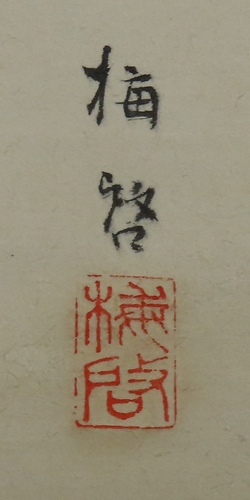 梅
啓
梅
啓